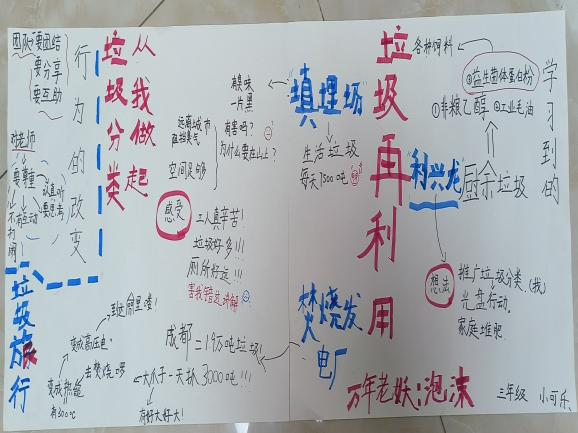 团队:要团结
要分享
要互助
对老师
要尊重
认真听
有互动
要思考
不打闹
行为的改变
垃圾分类
从我做起
垃圾旅行
有臭味
一片黑
有害吗?
为什么要在山上?
远离城市
阻挡臭气
空间足够
感受
工人真辛苦!
垃圾好多!!!
厕所好远!!!
害我错过讲解
"填埋场"
生活垃圾
每天1500吨
焚烧发电厂
成都=1.9万吨垃圾!
大爪子一天扒3000吨!!!
有好大好大!
去焚烧啰
变成热能
有300℃
变成高压电
到达桶里喽!
垃圾再利用
万年老妖:泡沫
各种饲料
③益生菌体蛋白粉
①非粮乙醇 ②工业毛油
"利兴龙"
厨余垃圾
学习到的
想法
推广垃圾分类.(我)
光盘行动.
家庭堆肥.
三年级 小可乐